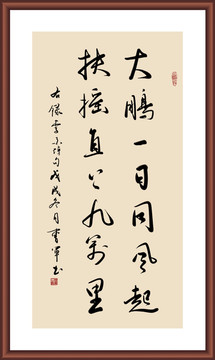 大鹏一日同风起
扶摇直上九万里
右录李白诗句戊戌冬月书军书